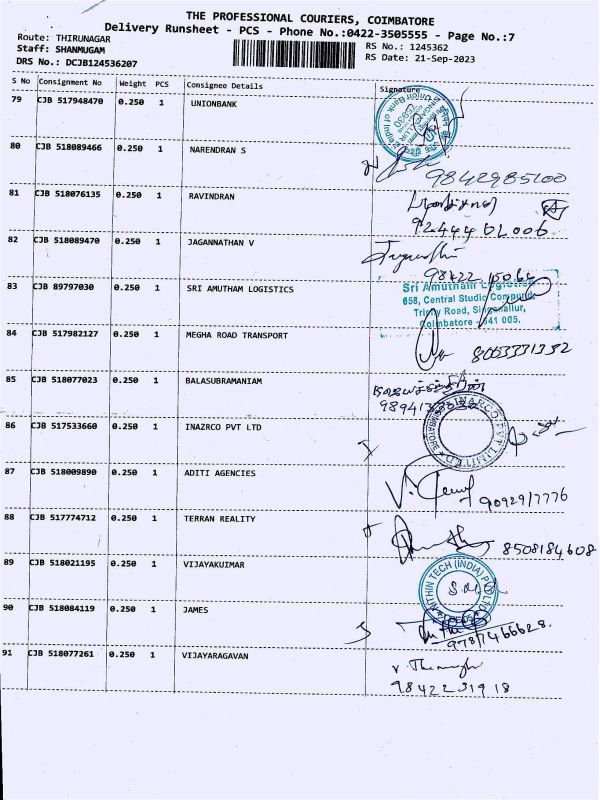 THE PROFESSIONAL COURIERS, COIMBATORE
Delivery Runsheet - PCS - Phone No.:0422-3505555 - Page No.:7
Route: THIRUNAGAR
RS No.: 1245362
Staff: SHANMUGAM
RS Date: 21-Sep-2023
DRS No.: DCJB124536207
S No Consignment No Weight PCS Consignee Details Signature
79 CJB 517948470 0.250 1 UNIONBANK
80 CJB 518089466 0.250 1 NARENDRAN S
9842985100
81 CJB 518076135 0.250 1 RAVINDRAN
92444 01006
82 CJB 518089470 0.250 1 JAGANNATHAN V
83 CJB 89797030 0.250 1 SRI AMUTHAM LOGISTICS
Sri Amutham Logistics
658, Central Studio Compound,
Trichy Road, Singanallur,
Coimbatore - 641 005.
84 CJB 517982127 0.250 1 MEGHA ROAD TRANSPORT
8053331332
85 CJB 518077023 0.250 1 BALASUBRAMANIAM
86 CJB 517533660 0.250 1 INAZRCO PVT LTD
87 CJB 518009890 0.250 1 ADITI AGENCIES
9092917776
88 CJB 517774712 0.250 1 TERRAN REALITY
8508184608
89 CJB 518021195 0.250 1 VIJAYAKUIMAR
NITHIN TECH (INDIA) PVT LTD
90 CJB 518084119 0.250 1 JAMES
9787466628.
91 CJB 518077261 0.250 1 VIJAYARAGAVAN
98422 31918